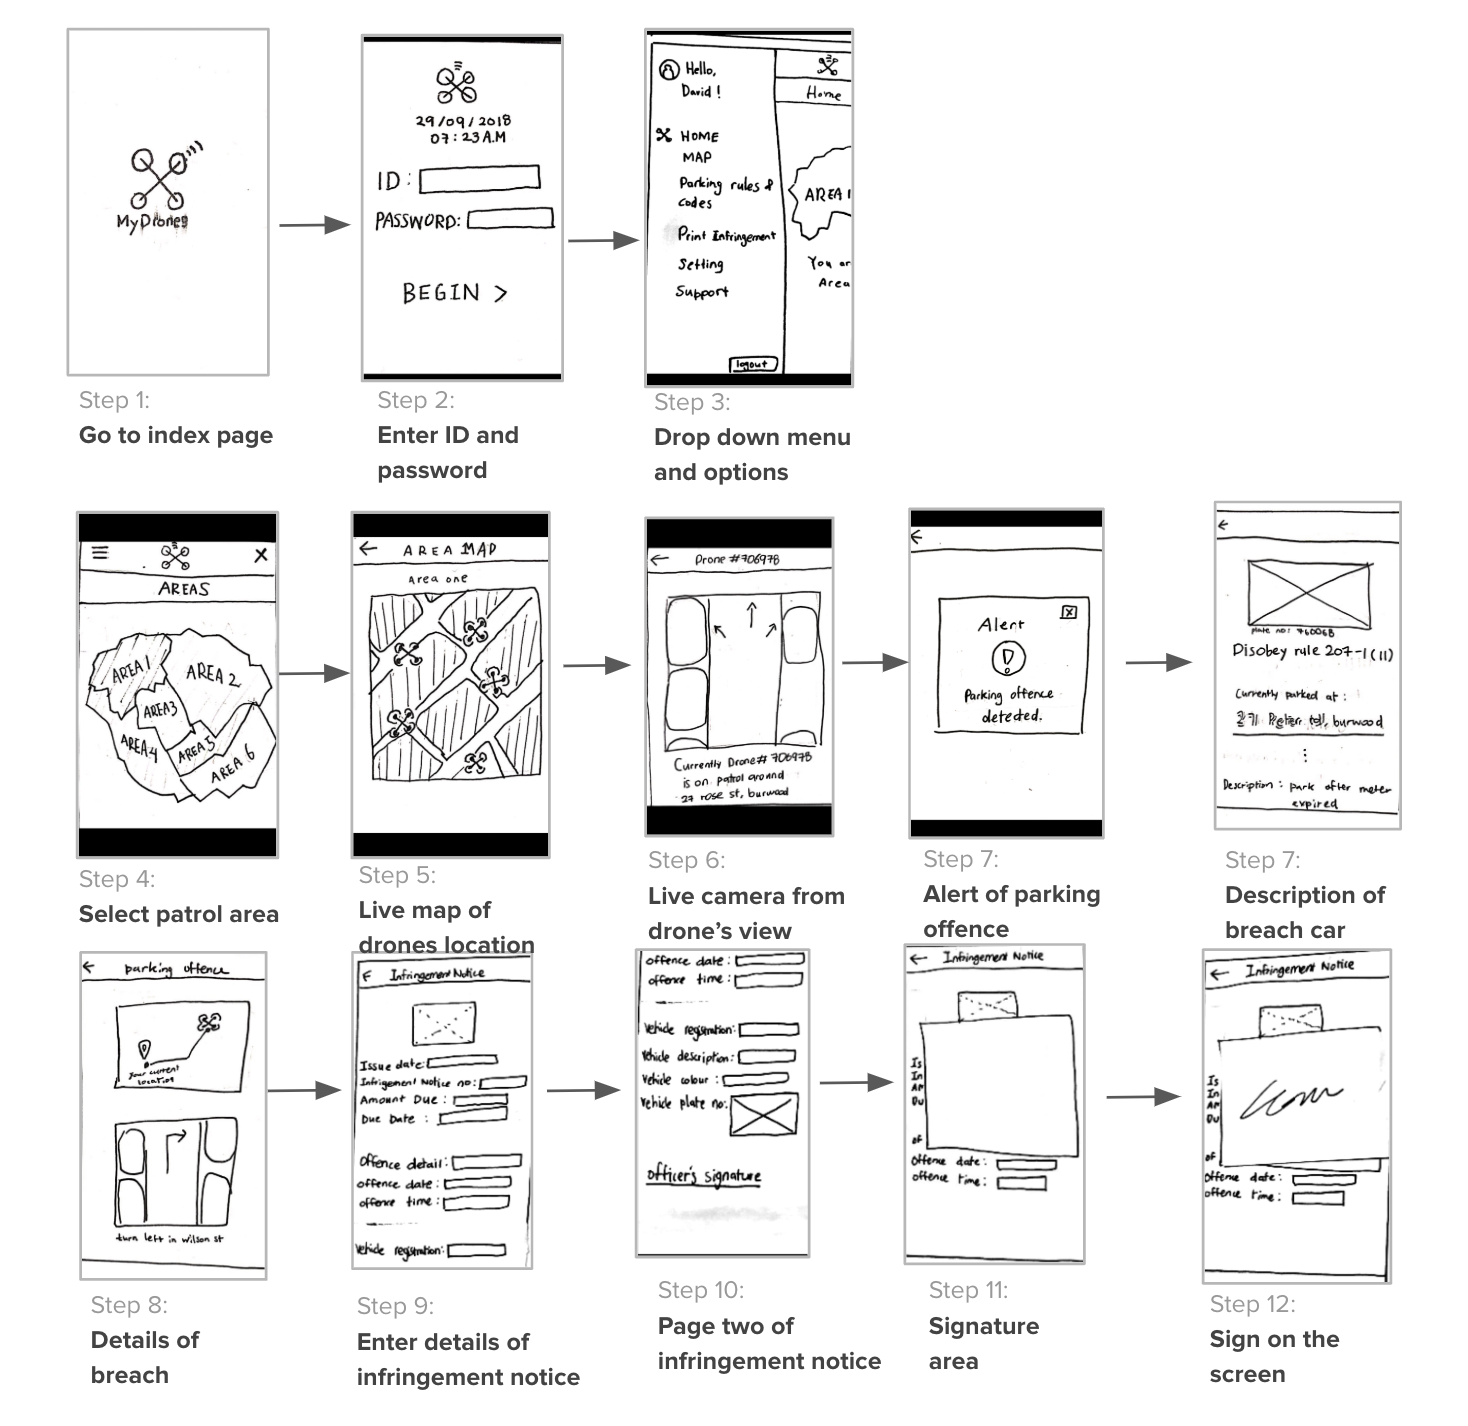 MyDrones
Step 1:
Go to index page
29/09/2018
07:23 A.M
ID:
PASSWORD:
BEGIN >
Step 2:
Enter ID and
password
Hello,
David!
HOME
MAP
Parking rules &
codes
Print Infringement
Setting
Support
logout
Home
AREA 1
You ar
Area
Step 3:
Drop down menu
and options
AREAS
AREA 1
AREA 2
AREA3
AREA4
AREA5
AREA 6
Step 4:
Select patrol area
AREA MAP
Area one
Step 5:
Live map of
drones location
Drone #70697B
Currently Drone# 70697B
is on patrol around
27 rose st, burwood
Step 6:
Live camera from
drone's view
Alert
Parking offence
detected.
Step 7:
Alert of parking
offence
plate no: 760068
Disobey rule 207-1(11)
Currently parked at:
burwood
Description: park after meter
expired
Step 7:
Description of
breach car
parking offence
Your current
location
turn left in wilson st
Step 8:
Details of
breach
Infringement Notice
Issue date:
Infrigement Notice no:
Amount Due:
Due Date:
Offence detail:
offence date:
offence time:
Vehicle registration:
Step 9:
Enter details of
infringement notice
offence date:
offence time:
Vehicle registration:
Vehicle description:
Vehicle colour:
Vehicle plate no:
Officer's signature
Step 10:
Page two of
infringement notice
Infringement Notice
Is
In
Am
Du
of
Offence date:
offence time:
Step 11:
Signature
area
Infringement Notice
Is
In
Am
Du
of
Offence date:
offence time:
Step 12:
Sign on the
screen